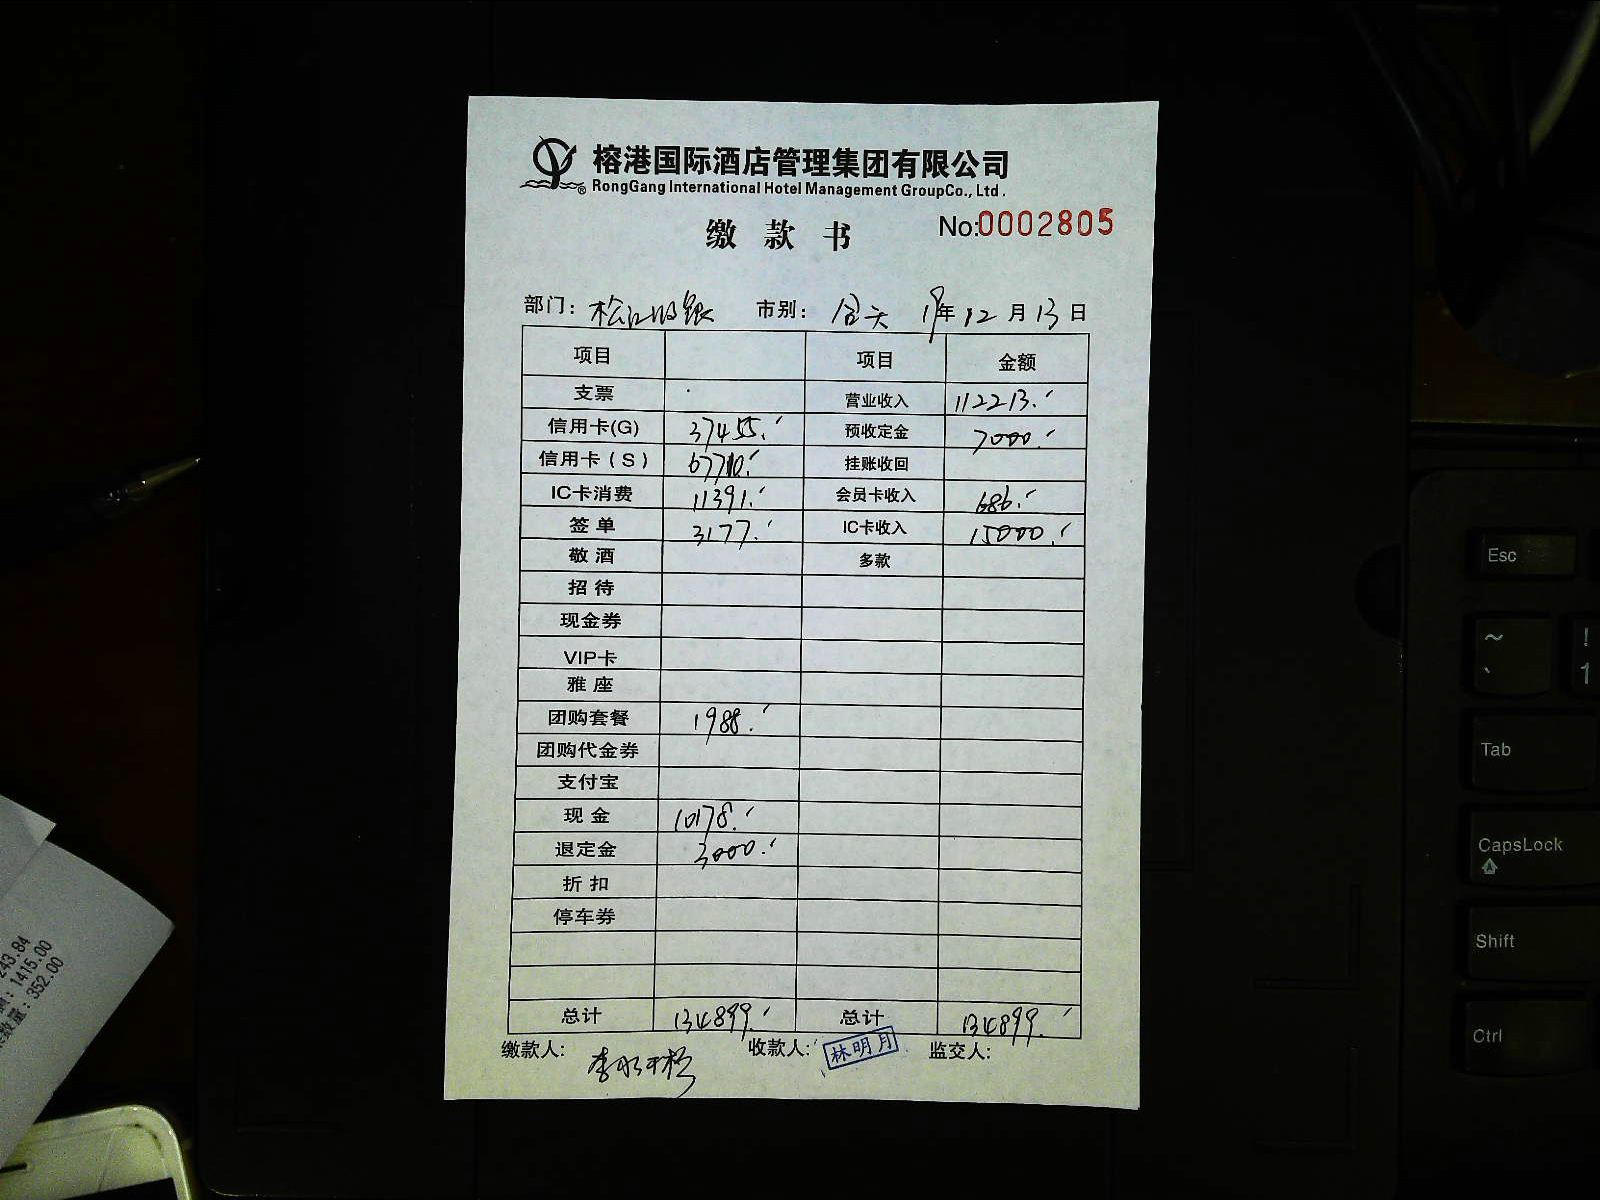 榕港国际酒店管理集团有限公司
®RongGang International Hotel Management GroupCo., Ltd.
缴款书 No:0002805
部门: 松江收银 市别: 全天 19年12月13日
项目 项目 金额
支票 营业收入 112213.
信用卡(G) 37455. 预收定金 7000.
信用卡(S) 67710. 挂账收回
IC卡消费 11391. 会员卡收入 686.
签单 3177. IC卡收入 15000.
敬酒 多款
招待
现金券
VIP卡
雅座
团购套餐 1988.
团购代金券
支付宝
现金 10178.
退定金 3000.
折扣
停车券
总计 134899. 总计 134899.
缴款人: 收款人: 林明月 监交人:
243.84
1415.00
数量: 352.00
Esc
~ !
` 1
Tab
CapsLock
Shift
Ctrl